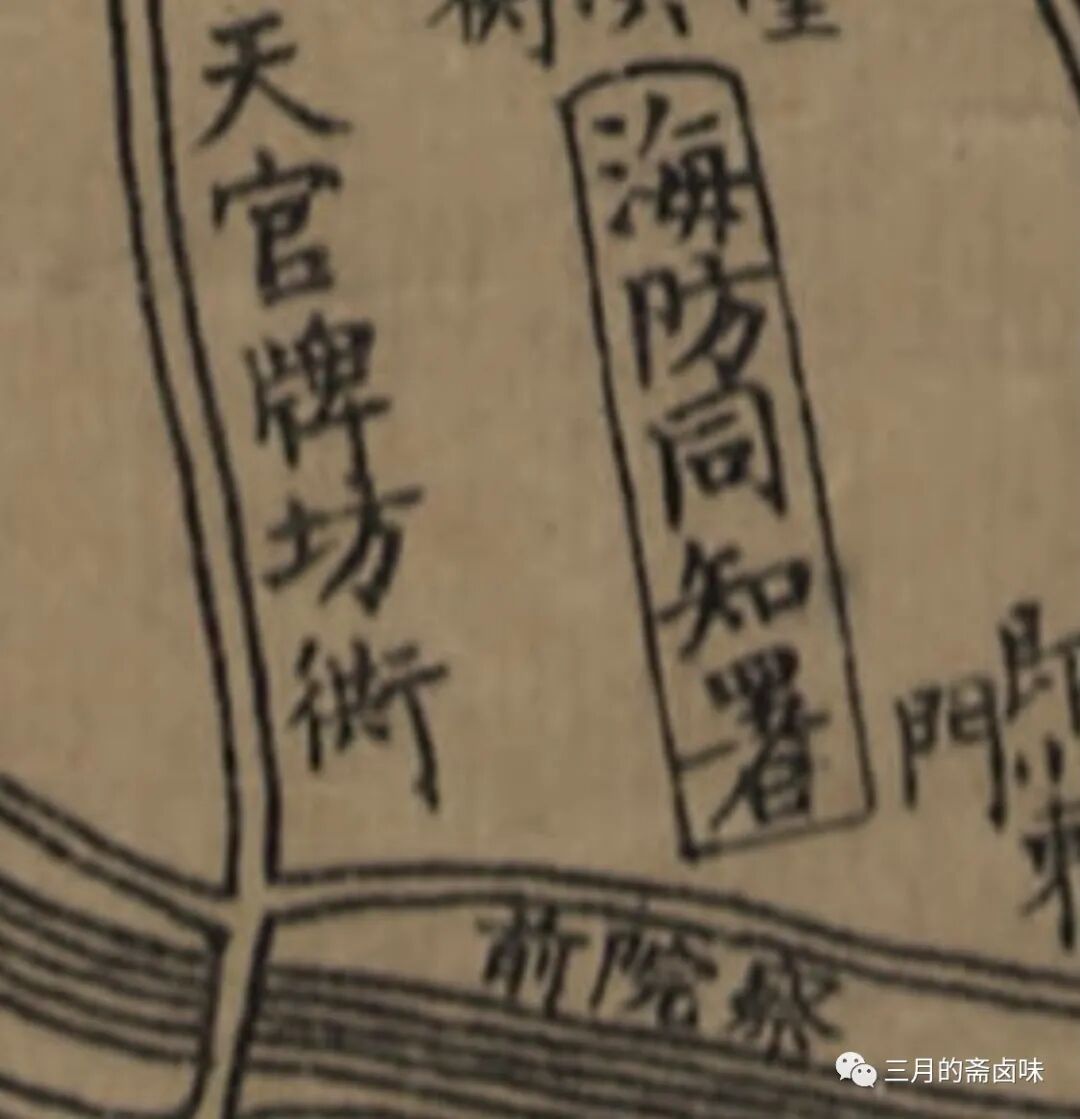 天官牌坊衖
海防同知署
門
前院察
三月的斋卤味